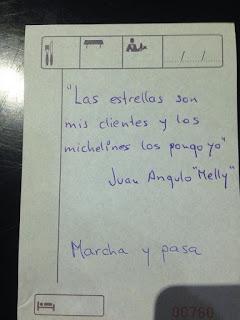 / /
"Las estrellas son
mis clientes y los
michelines los pongo yo"
Juan Angulo "Melly"
Marcha y pasa
00760